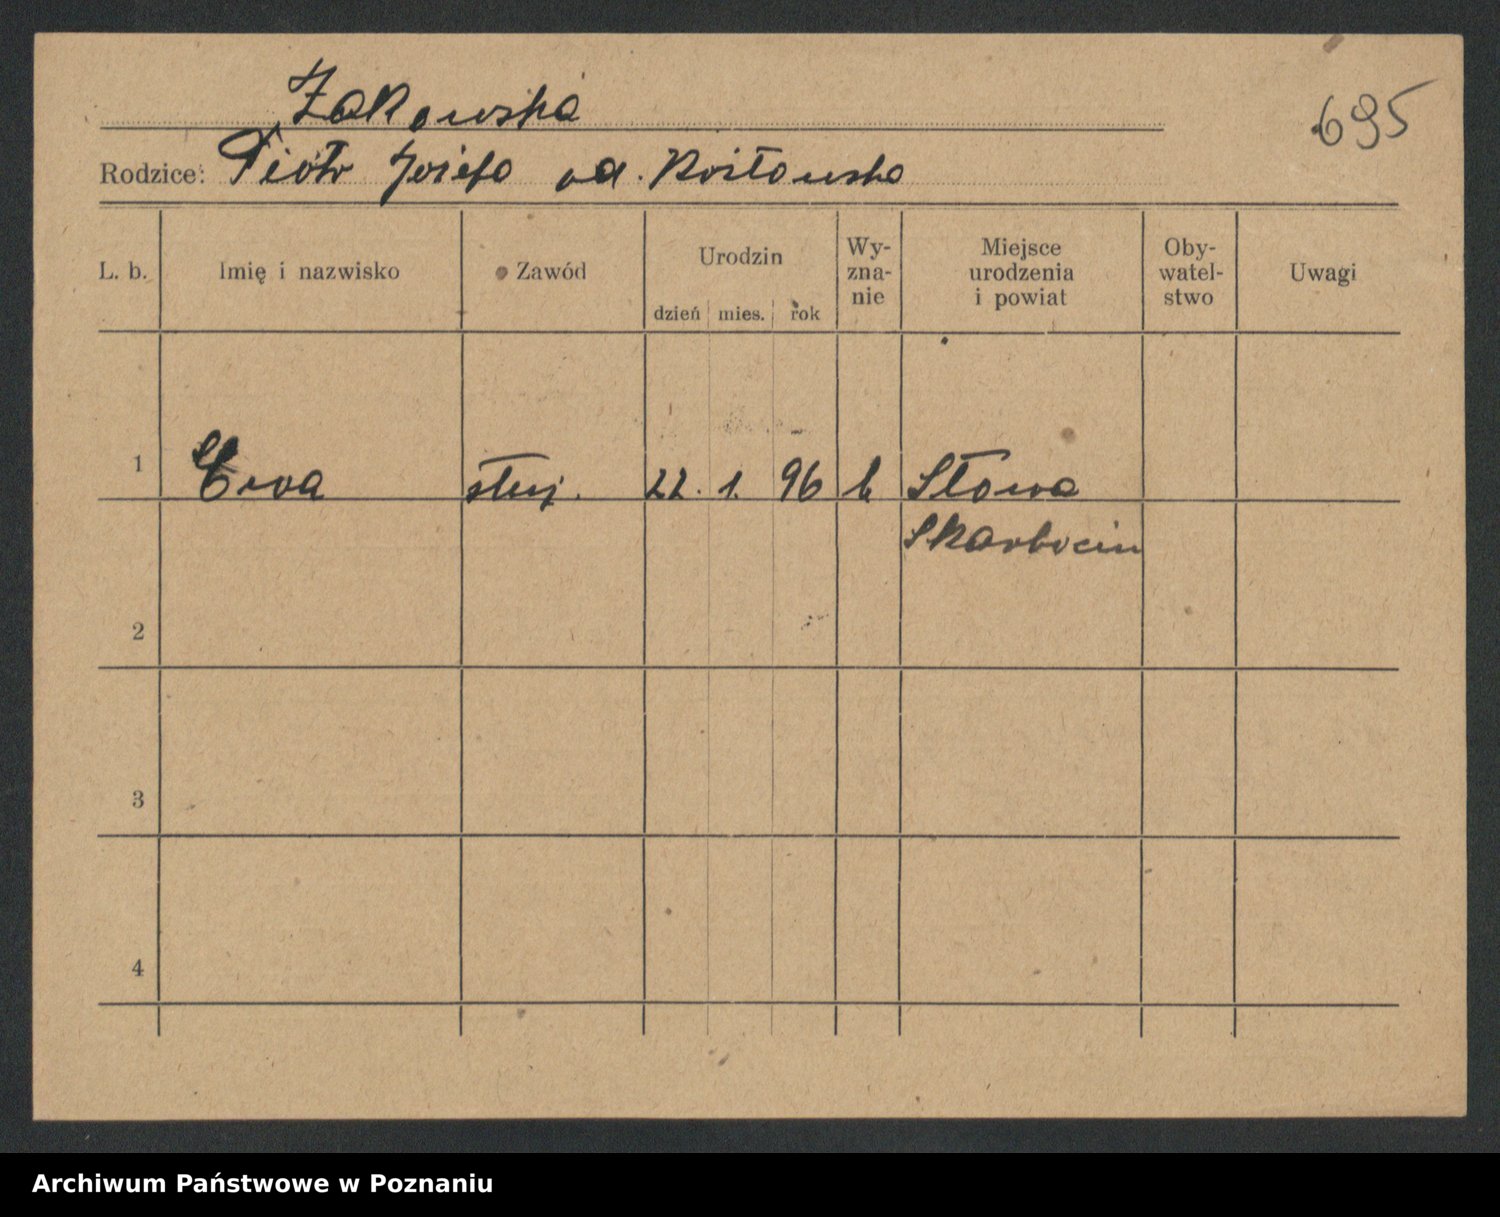 Żakowska
695
Rodzice: Piotr Józefa od. Kozłowska
L. b. Imię i nazwisko Zawód Urodzin dzień mies. rok Wy-zna-nie Miejsce urodzenia i powiat Oby-watel-stwo Uwagi
1 Ewa służ. 22. 1. 96 k Słowa
Skarbocin
2
3
4
Archiwum Państwowe w Poznaniu